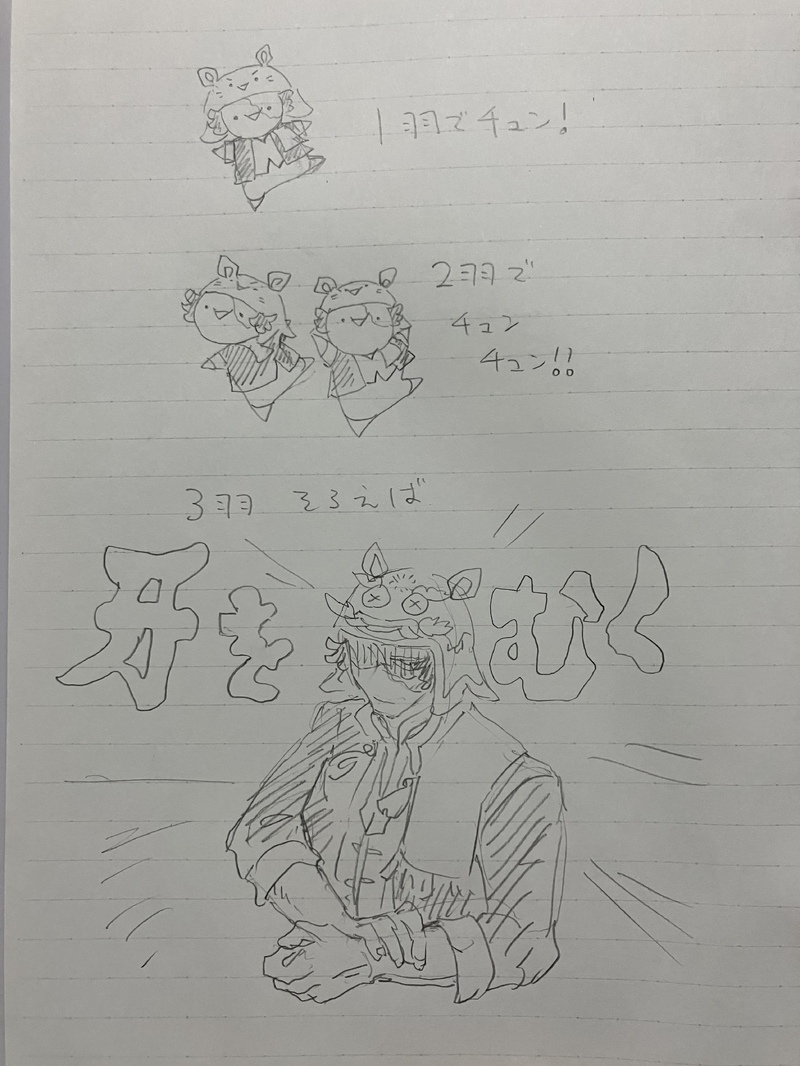 N
1羽でチュン!
N
2羽で
チュン
チュン!!
3羽 そろえば
牙をむく